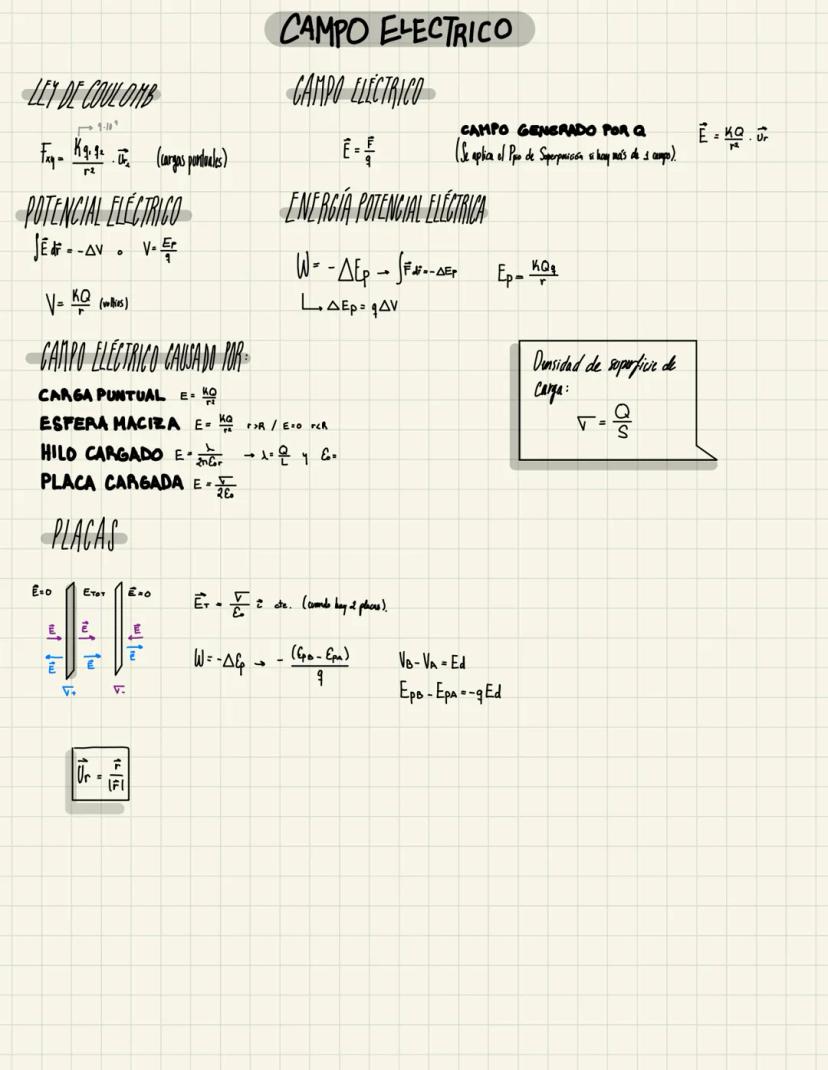 CAMPO ELECTRICO
LEY DE COULOMB
9·10⁹
Fxy = K q₁ q₂ / r² · u⃗r₂ (cargas puntuales)
CAMPO ELÉCTRICO
E⃗ = F⃗ / q
CAMPO GENERADO POR Q
(Se aplica el Ppio de Superposición si hay más de 1 campo).
E⃗ = KQ / r² · u⃗r
POTENCIAL ELÉCTRICO
∫E⃗ dr⃗ = -ΔV o V = Ep / q
V = KQ / r (voltios)
ENERGÍA POTENCIAL ELÉCTRICA
W = -ΔEp → ∫F⃗ dr⃗ = -ΔEp
↳ ΔEp = qΔV
Ep = KQq / r
CAMPO ELÉCTRICO CAUSADO POR:
CARGA PUNTUAL E = KQ / r²
ESFERA MACIZA E = KQ / r² r>R / E=0 r<R
HILO CARGADO E = λ / 2πε₀r → λ = Q / L y ε₀ =
PLACA CARGADA E = σ / 2ε₀
Densidad de superficie de
carga:
σ = Q / S
PLACAS
E⃗=0 ETOT E⃗=0
E⃗ E⃗ E⃗
E⃗ E⃗ E⃗
σ+ σ-
E⃗T = σ / ε₀ i⃗ cte. (cuando hay 2 placas).
W = -ΔEp → - (EpB - EpA) / q
VB - VA = Ed
EpB - EpA = -qEd
U⃗r = r⃗ / |r⃗|